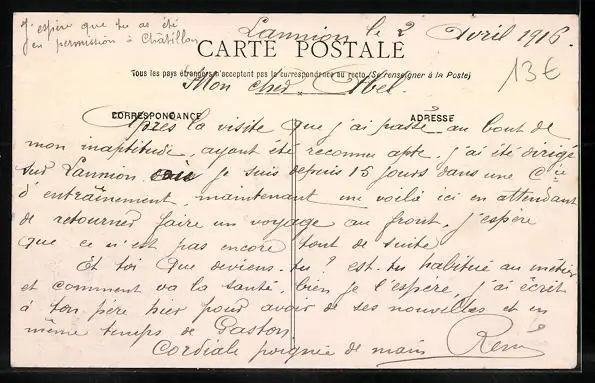 J'espère que tu as été
en permission à Châtillon
Lannion, le 2 Avril 1916.
CARTE POSTALE
Tous les pays étrangers n'acceptent pas la correspondance au recto (Se renseigner à la Poste)
13€
Mon cher Abel
CORRESPONDANCE
ADRESSE
Après la visite que j'ai passé au bout de
mon inaptitude, ayant été reconnu apte, j'ai été dirigé
sur Lannion où je suis depuis 15 jours dans une Cie
d'entraînement, maintenant me voilà ici en attendant
de retourner faire un voyage au front, j'espère
que ce n'est pas encore tout de suite.
Et toi que deviens-tu ? es-tu habitué au métier
et comment va la santé, bien je l'espère, j'ai écrit
à ton père hier pour avoir de ses nouvelles et en
même temps de Gaston.
Cordiale poignée de main René